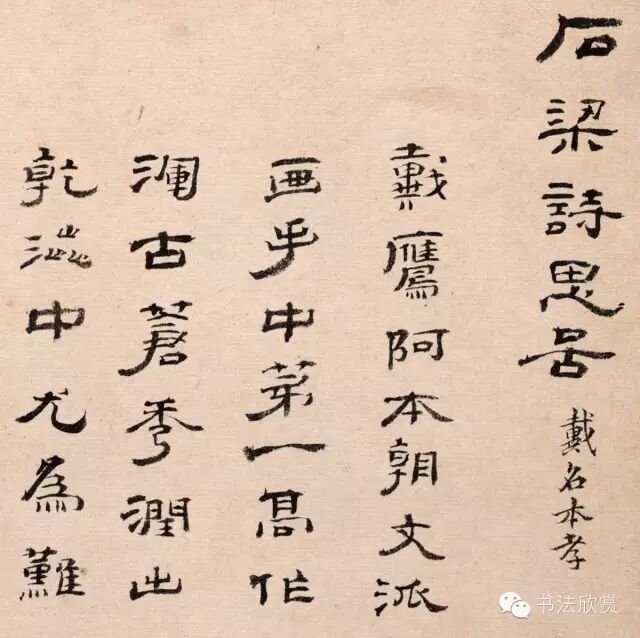 石梁詩思
戴名本孝
戴鷹阿本朝文派
画手中苐一高作
渾古蒼秀潤出
乾澁中尤為難
书法欣赏